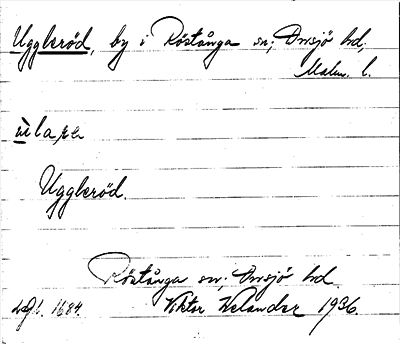 Uggleröd, by i Röstånga sn, Onsjö hd,
Malm. l.
ùlarp
Uggleröd.
Röstånga sn, Onsjö hd.
Viktor Welander 1936.
1684.